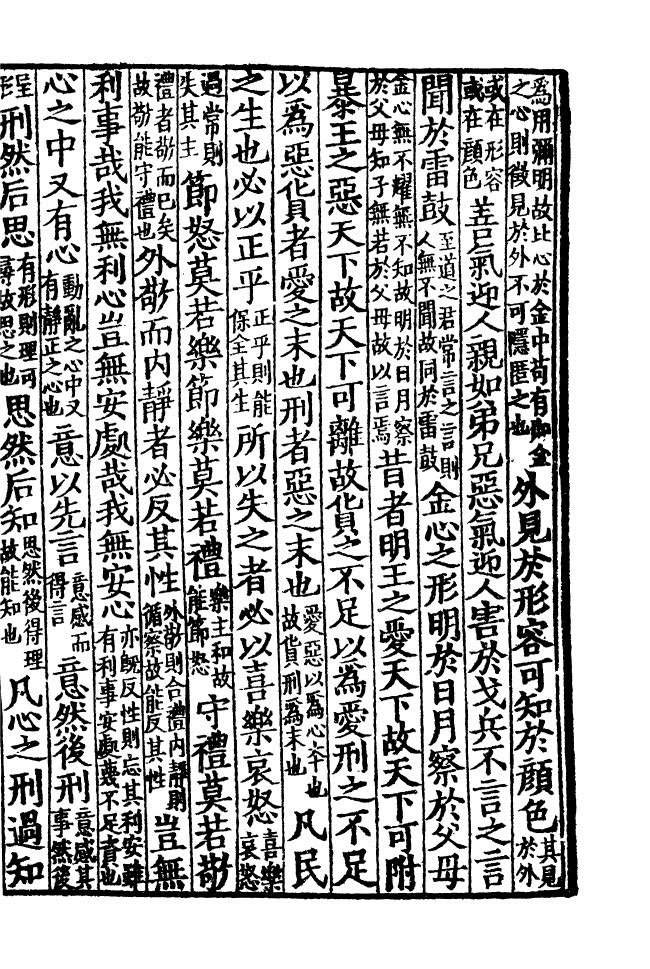 為用彌明故比心於金中苟有如金之心則徵見於外不可隱匿之也外見於形容可知於顏色其見於外
或在形容或在顏色善氣迎人親如弟兄惡氣迎人害於戈兵不言之言
聞於雷鼓至道之君常言之言則人無不聞故同於雷鼓金心之形明於日月察於父母
金心無不耀無不知故明於日月察於父母知子無若於父母故以言焉昔者明王之愛天下故天下可附
暴王之惡天下故天下可離故貨之不足以為愛刑之不足
以為惡貨者愛之末也刑者惡之末也愛惡以為心本也故貨刑為末也凡民
之生也必以正乎正乎則能保全其生所以失之者必以喜樂哀怒喜樂哀怒
過常則失其主節怒莫若樂節樂莫若禮樂主和故能節怒守禮莫若敬
禮者敬而已矣故敬能守禮也外敬而內靜者必反其性外敬則合禮內靜則循察故能反其性豈無
利事哉我無利心豈無安處哉我無安心亦既反性則忘其利安雖有利事安處蓋不足貴也
心之中又有心動亂之心中又有靜正之心也意以先言意感而得言意然後刑意感其事然後
呈形刑然后思有形則理可尋故思之也思然后知思然後得理故能知也凡心之刑過知